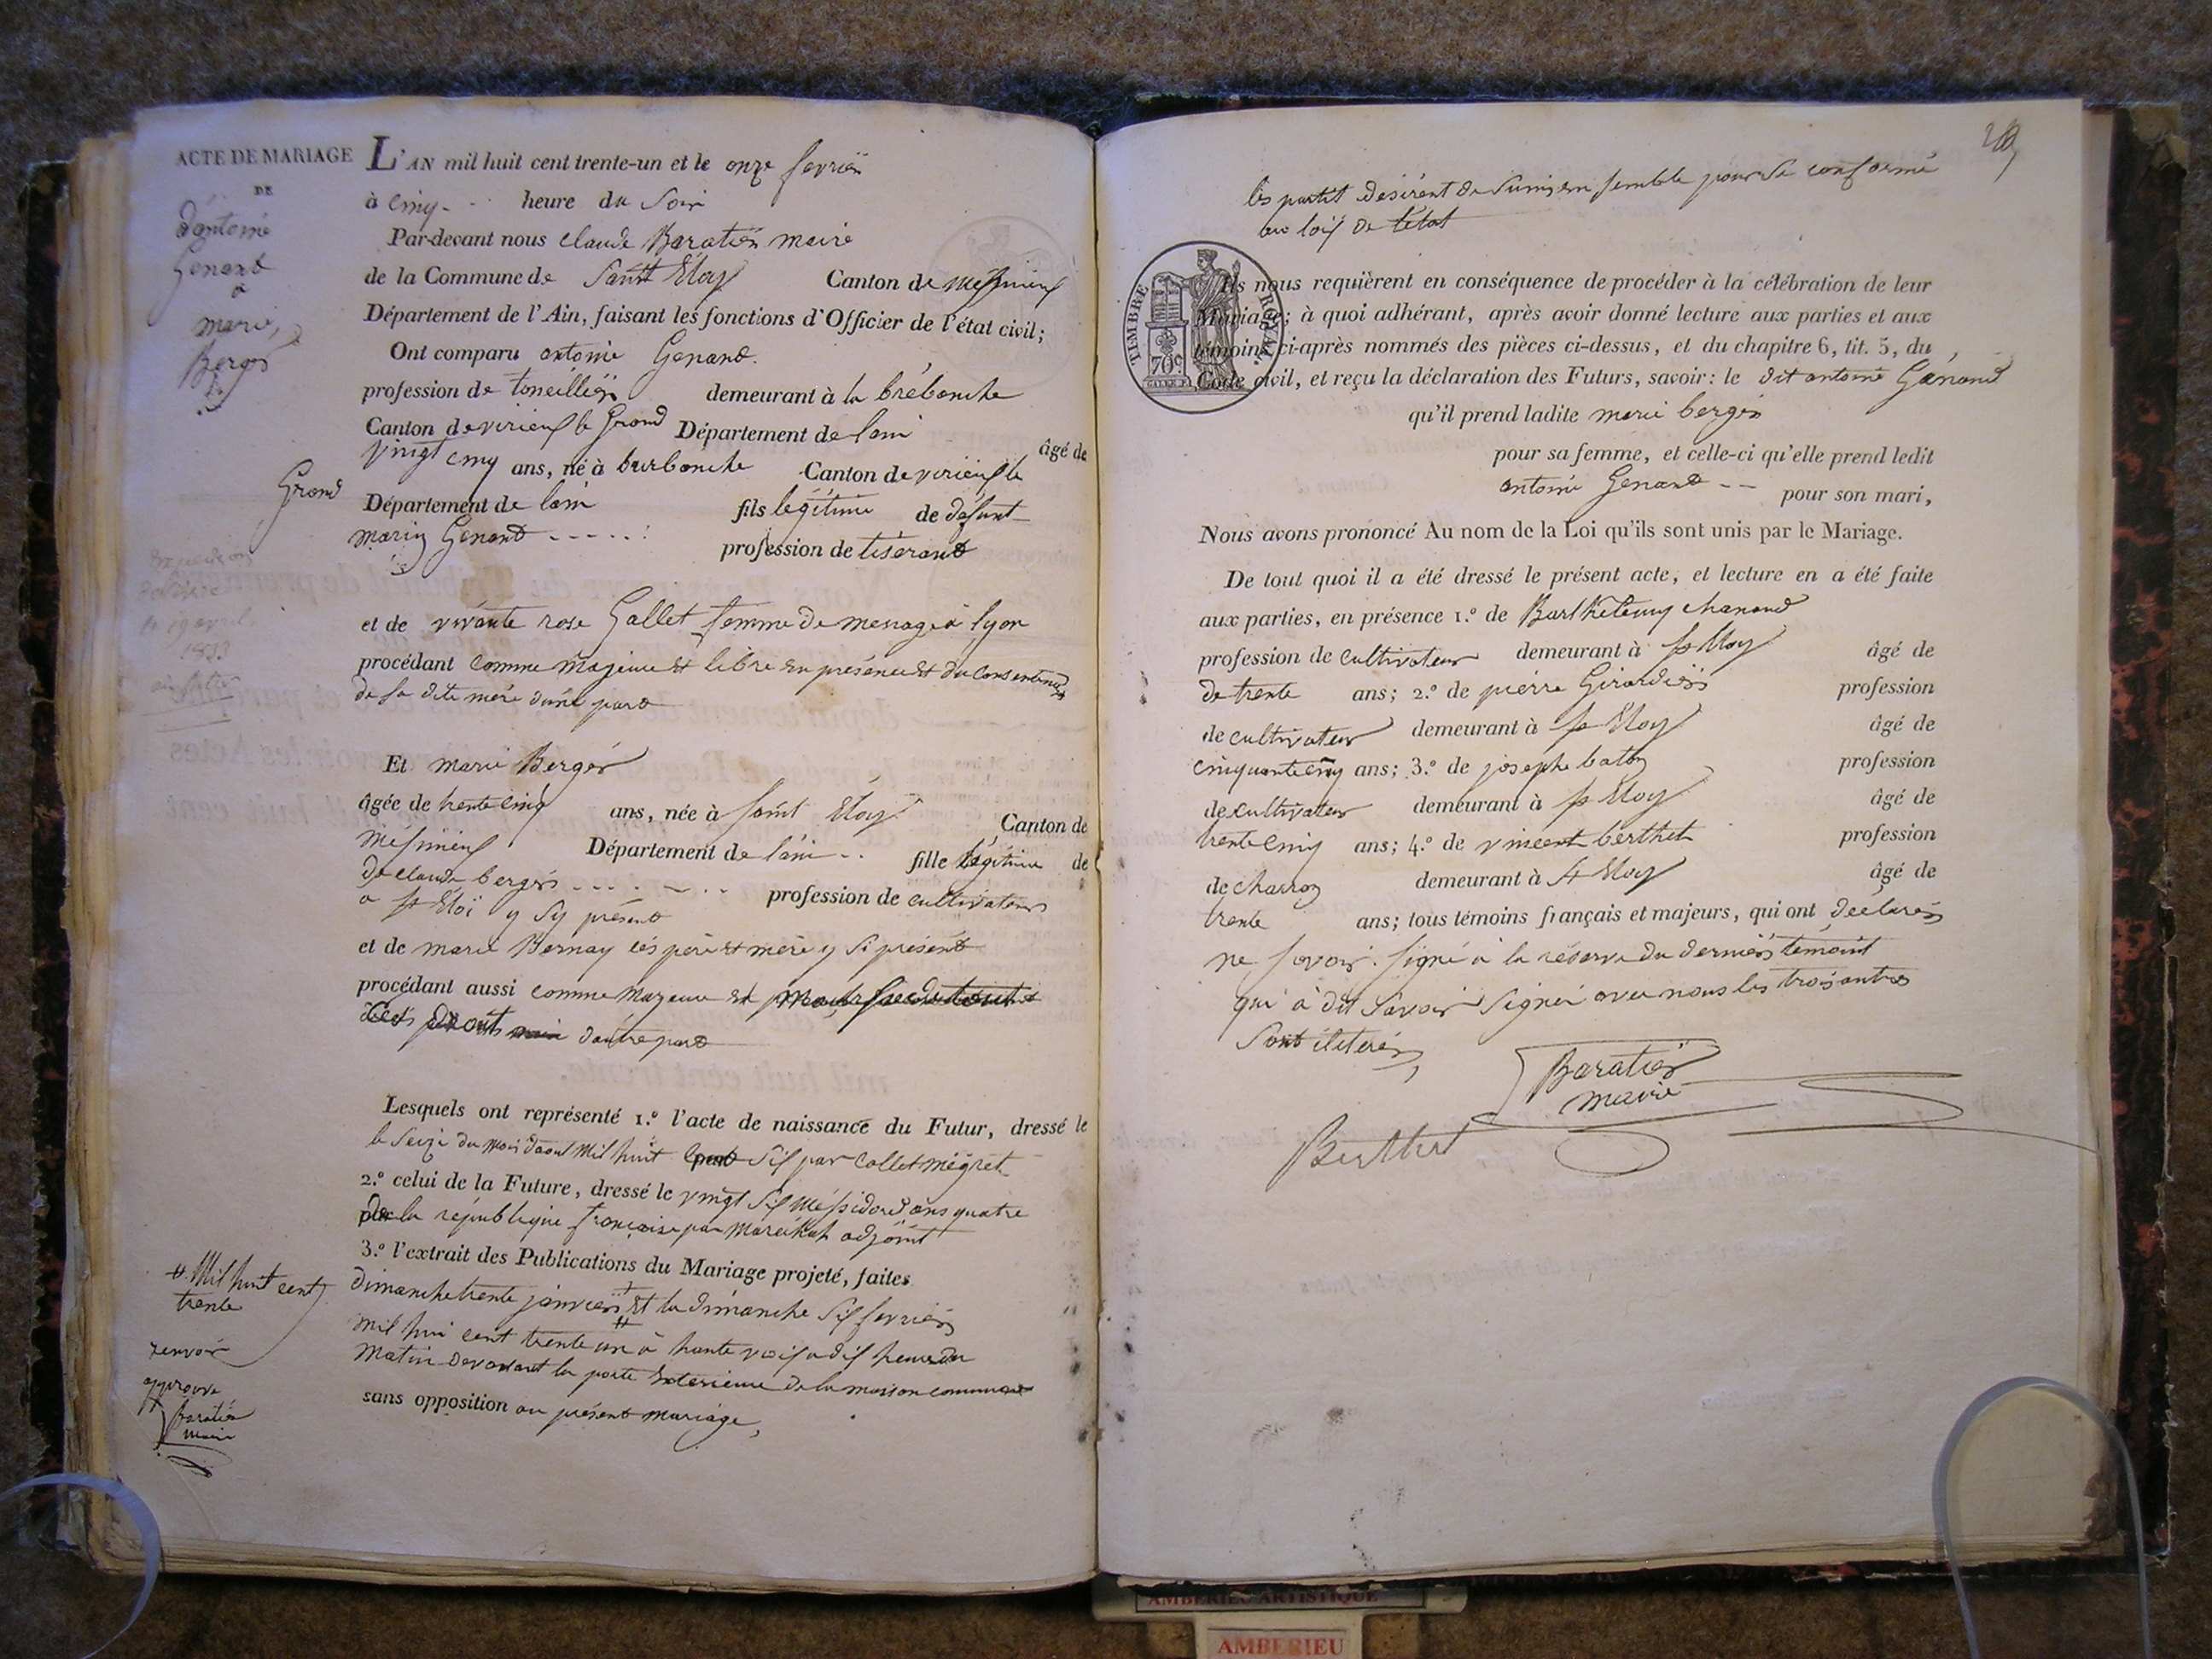 ACTE DE MARIAGE
DE
d'antoine
Genand
à
marie
Berger
L'AN mil huit cent trente-un et le onze fevrier
à cinq heure du Soir
Par-devant nous claude Baratier maire
de la Commune de Saint Eloy Canton de meximieux
Département de l'Ain, faisant les fonctions d'Officier de l'état civil;
Ont comparu antoine Genand.
profession de tonneillier demeurant à la brebanche
Canton de virieux le Grand Département de lain âgé de
vingt cinq ans, né à burbanche Canton de virieux le
Grand
Département de lain fils légitime de défunt
marin Genand profession de tiserand
et de vivante rose Gallet femme de menage à lyon
procédant comme majeure et libre en présence et du consentement
de sa dite mère d'une part
Et marie Berger
âgée de trente cinq ans, née à saint Eloy Canton de
meximieux Département de l'ain fille légitime de
de claude berger profession de cultivateur
a st Eloi y Sy présent
et de marie Bernay ces père et mère y si présent
procédant aussi comme majeure et
d'autre part
Lesquels ont représenté 1.º l'acte de naissance du Futur, dressé le
le Seize du mois daout mil huit cent Six par Collet mégret
2.º celui de la Future, dressé le vingt Six messidord ans quatre
de la république française par adjoint
3.º l'extrait des Publications du Mariage projeté, faites
dimanche trente janvier # et le dimanche Six fevrier
mil hui cent trente un à haute voix a dix heure du
matin devant la porte exterieure de la maison commune
sans opposition au présent mariage,
# Mil huit cent
trente
renvoi
approuvé
Baratier
maire
1833
les partit desirent de S'unir en semble pour se conformé
au loix de l'état
TIMBRE ROYAL
70c
Ils nous requièrent en conséquence de procéder à la célébration de leur
Mariage; à quoi adhérant, après avoir donné lecture aux parties et aux
témoins ci-après nommés des pièces ci-dessus, et du chapitre 6, tit. 5, du
Code civil, et reçu la déclaration des Futurs, savoir: le dit antoine Genand
qu'il prend ladite marie berger
pour sa femme, et celle-ci qu'elle prend ledit
antoine Genand pour son mari,
Nous avons prononcé Au nom de la Loi qu'ils sont unis par le Mariage.
De tout quoi il a été dressé le présent acte, et lecture en a été faite
aux parties, en présence 1.º de Barthelemy chanand
profession de cultivateur demeurant à st Eloy âgé de
de trente ans; 2.º de pierre Girardier profession
de cultivateur demeurant à st Eloy âgé de
cinquante cinq ans; 3.º de josephe baton profession
de cultivateur demeurant à st Eloy âgé de
trente cinq ans; 4.º de vincent berthet profession
de charron demeurant à st Eloy âgé de
trente ans; tous témoins français et majeurs, qui ont déclarer
ne savoir signé à la réserve du dernier temoint
qui à dit Savoir Signer avec nous les trois autres
Sont iliterer,
Baratier
maire
Berthet
AMBERIEU ARTISTIQUE
AMBERIEU